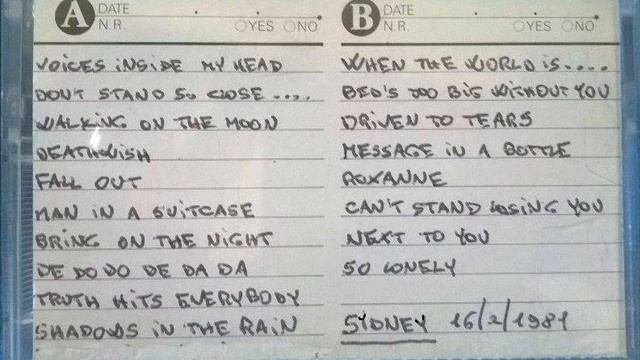 A DATE
N.R. YES NO
VOICES INSIDE MY HEAD
DON'T STAND SO CLOSE ....
WALKING ON THE MOON
DEATHWISH
FALL OUT
MAN IN A SUITCASE
BRING ON THE NIGHT
DE DO DO DE DA DA
TRUTH HITS EVERYBODY
SHADOWS IN THE RAIN
B DATE
N.R. YES NO
WHEN THE WORLD IS....
BED'S TOO BIG WITHOUT YOU
DRIVEN TO TEARS
MESSAGE IN A BOTTLE
ROXANNE
CAN'T STAND LOSING YOU
NEXT TO YOU
SO LONELY
SYDNEY 16/2/1981